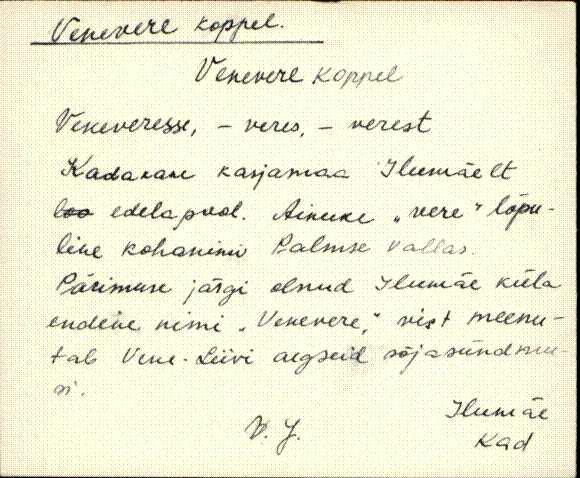 Venevere koppel.
Venevere koppel
Veneveresse, - veres, - verest
Kadakane karjamaa Ilumäelt
loo edelapool. Ainuke „vere" lõpu-
line kohanimi Palmse vallas.
Pärimuse järgi olnud Ilumäe küla
endine nimi „Venevere," vist meenu-
tab Vene-Liivi aegseid sõjasündmu-
si.
Ilumäe
V. J.
Kad